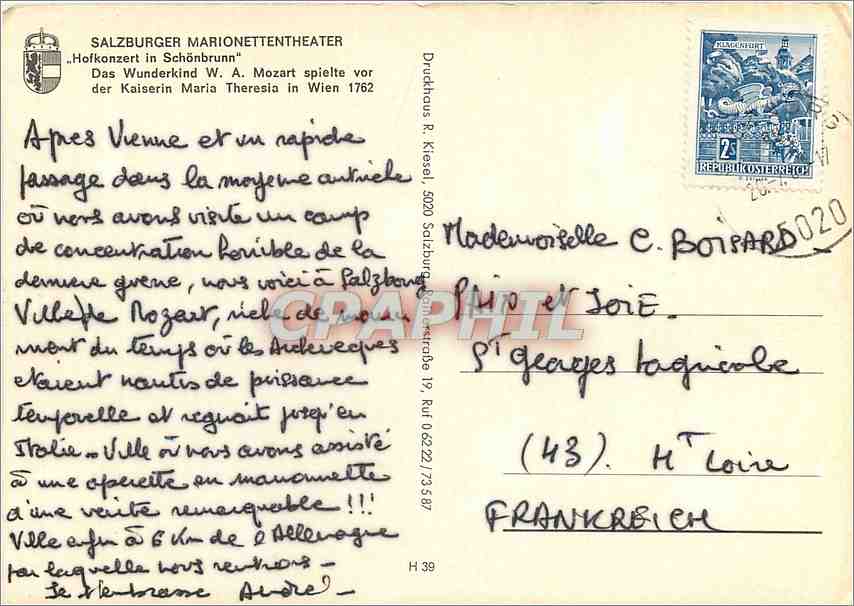 SALZBURGER MARIONETTENTHEATER
„Hofkonzert in Schönbrunn"
Das Wunderkind W. A. Mozart spielte vor
der Kaiserin Maria Theresia in Wien 1762
Apres Vienne et un rapide
passage dans la moyenne autriche
où nous avons visité un camp
de concentration horrible de la
derniere guerre, nous voici à Salzbourg
Ville de Mozart, riche de monu
ment du temps où les Archeveques
etaient nantis de puissance
temporelle et regnait jusqu'en
Italie. Ville où nous avons assisté
à une operette en marionnette
d'une verité remarquable !!!
Ville enfin à 6 Km de l'Allemagne
par laquelle nous rentrons -
Je t'embrasse André -
Druckhaus R. Kiesel, 5020 Salzburg, Rainerstraße 19, Ruf 0 62 22 / 7 35 87
H 39
KLAGENFURT
2S
REPUBLIK ÖSTERREICH
5020
Mademoiselle C. BOISARD
PAIX et JOIE.
St Georges Lagricole
(43). Ht Loire
FRANKREICH
CPAPHIL